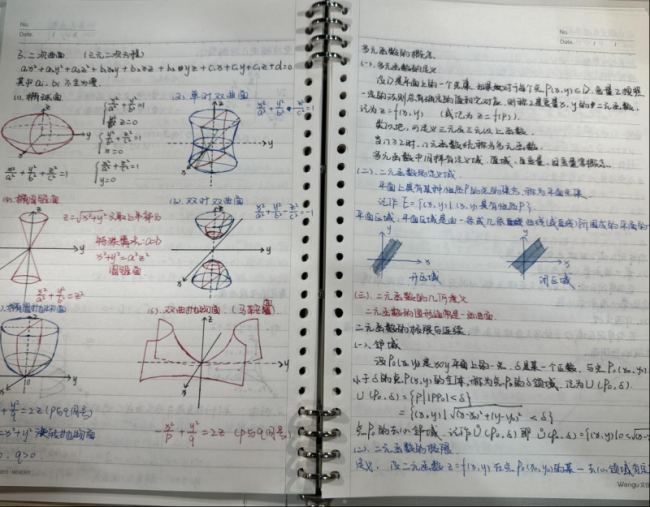 No.
Date.
3. 二次曲面 (三元二次方程)
a₁x²+a₂y²+a₃z²+b₁xy+b₂xz+b₃yz+c₁x+c₂y+c₃z+d=0
其中 aᵢ, bᵢ 不全为零.
(1). 椭球面
x²/a²+y²/b²=1
z=0
x=0
y=0
x²/a²+y²/b²+z²/c²=1
(2). 单叶双曲面
x²/a²+y²/b²-z²/c²=1
(3). 椭圆锥面
z=√x²+y² 只取上半部分
特殊情况: a=b
x²+y²=a²z²
圆锥面
x²/a²+y²/b²=z²
(4). 双叶双曲面
x²/a²+y²/b²-z²/c²=-1
椭圆抛物面
=2z (p与q同号)
旋转抛物面
q>0
(6). 双曲抛物面 (马鞍面)
-x²/p+y²/q=2z (p与q同号)
No.
Date.
多元函数的概念
(一). 多元函数的定义
设D是平面上的一个点集, 如果对于每个点P(x,y)∈D, 变量z按照
一定的法则总有确定的值和它对应, 则称z是变量x、y的二元函数,
记为 z=f(x,y) (或记为z=f(P)).
类似地, 可定义三元及三元以上函数.
当n≥2时, n元函数统称为多元函数.
多元函数中同样有定义域、值域、自变量、因变量等概念.
(二). 二元函数的定义域
平面上具有某种性质P的点的集合, 称为平面点集,
记作 E={(x,y)|(x,y)具有性质P}.
平面区域: 平面区域是由一条或几条曲线(或直线)所围成的平面的
开区域
闭区域
(三). 二元函数的几何意义
二元函数的图形通常是一张曲面.
二元函数的极限与连续
(一). 邻域
设P₀(x₀,y₀)是xoy平面上的一点, δ是某一个正数, 与点P₀(x₀,y₀)
小于δ的点P(x,y)的全体, 称为点P₀的δ邻域, 记为U(P₀,δ).
U(P₀,δ)={P||PP₀|<δ}
={(x,y)|√(x-x₀)²+(y-y₀)²<δ}
点P₀的去心邻域, 记作Ů(P₀,δ) 即 Ů(P₀,δ)={(x,y)|0<√(x-
(二). 二元函数的极限
定义: 设二元函数z=f(x,y)在点P₀(x₀,y₀)的某一去心邻域有定